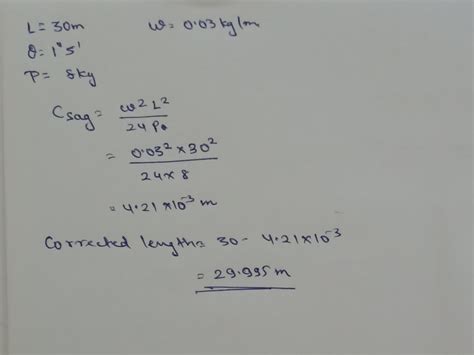 L = 30m w = 0.03 kg/m
θ = 1° 5'
P = 8kg
Csag = w² L² / 24 P₀
= 0.03² × 30² / 24 × 8
= 4.21 × 10⁻³ m
Corrected length = 30 - 4.21 × 10⁻³
= 29.995 m